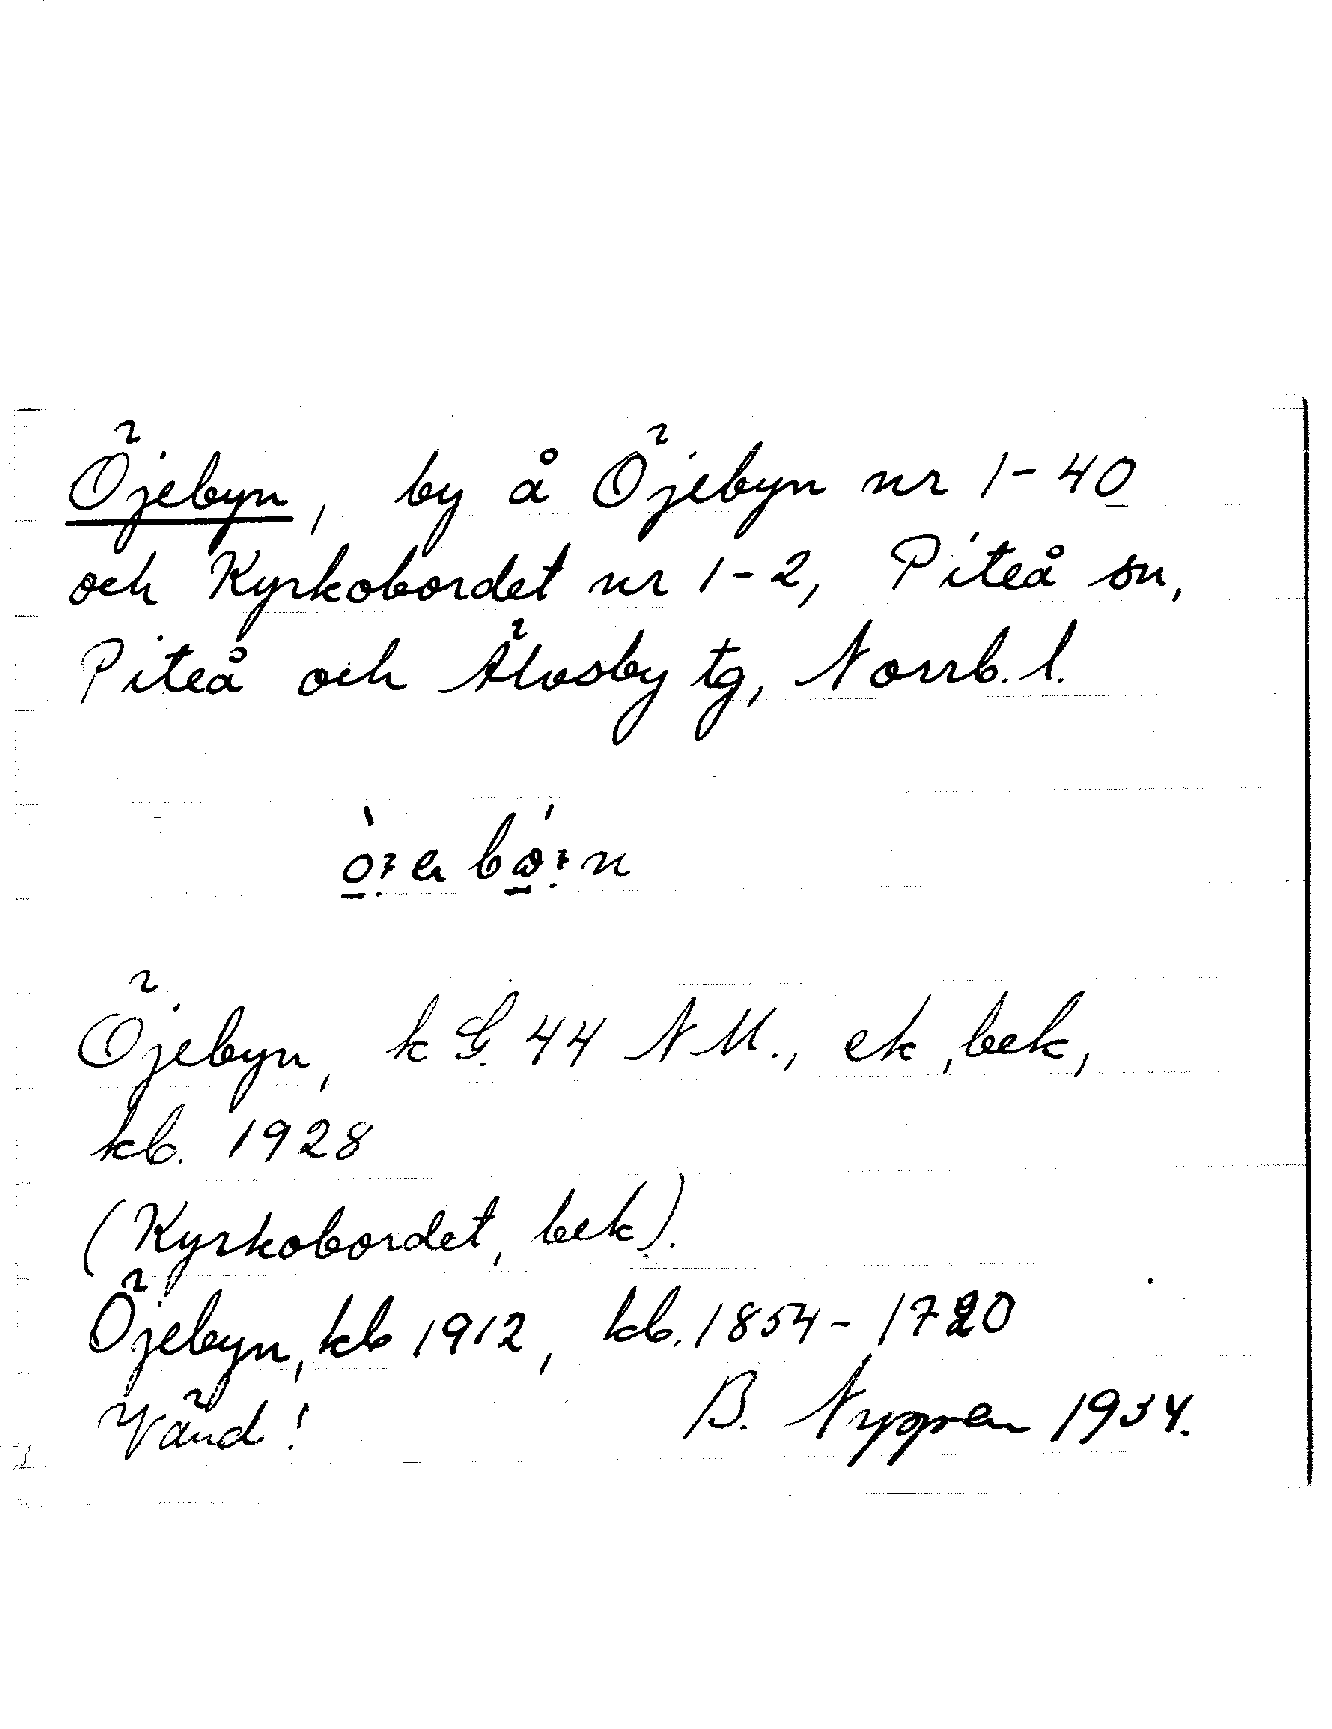 Öjebyn, by å Öjebyn nr 1-40
och Kyrkobordet nr 1-2, Piteå sn,
Piteå och Älvsby tg, Norrb. l.
Öjebyn, k G. 44 NM., ek, bek,
kb. 1928
(Kyrkobordet, bek).
Öjebyn, kb 1912, kb. 1854-1720
Vänd! B. Nygren 1934.